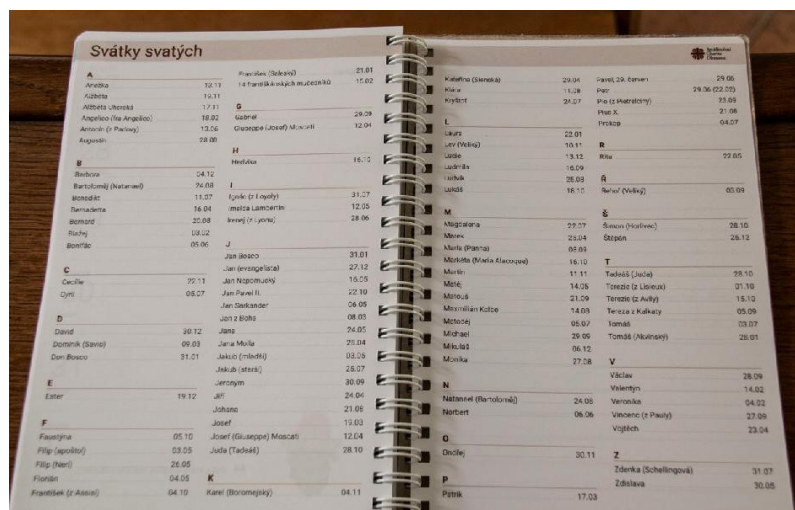 Svátky svatých
A
Anežka 13.11
Alžběta 19.11
Alžběta Uherská 17.11
Angelico (fra Angelico) 18.02
Antonín (z Padovy) 13.06
Augustin 28.08
B
Barbora 04.12
Bartoloměj (Natanael) 24.08
Benedikt 11.07
Bernadetta 16.04
Bernard 20.08
Blažej 03.02
Bonifác 05.06
C
Cecílie 22.11
Cyril 05.07
D
David 30.12
Dominik (Savio) 09.03
Don Bosco 31.01
E
Ester 19.12
F
Faustýna 05.10
Filip (apoštol) 03.05
Filip (Neri) 26.05
Florián 04.05
František (z Assisi) 04.10
František (Saleský) 21.01
14 františkánských mučedníků 15.02
G
Gabriel 29.09
Giuseppe (Josef) Moscati 12.04
H
Hedvika 16.10
I
Ignác (z Loyoly) 31.07
Imelda Lambertini 12.05
Irenej (z Lyonu) 28.06
J
Jan Bosco 31.01
Jan (evangelista) 27.12
Jan Nepomucký 16.05
Jan Pavel II. 22.10
Jan Sarkander 06.05
Jan z Boha 08.03
Jana 24.05
Jana Molla 28.04
Jakub (mladší) 03.05
Jakub (starší) 25.07
Jeroným 30.09
Jiří 24.04
Johana 21.08
Josef 19.03
Josef (Giuseppe) Moscati 12.04
Juda (Tadeáš) 28.10
K
Karel (Boromejský) 04.11
Kateřina (Sienská) 29.04
Klára 11.08
Kryštof 24.07
L
Laura 22.01
Lev (Veliký) 10.11
Lucie 13.12
Ludmila 16.09
Ludvík 25.08
Lukáš 18.10
M
Magdalena 22.07
Marek 25.04
Maria (Panna) 08.09
Markéta (Marie Alacoque) 16.10
Martin 11.11
Matěj 14.05
Matouš 21.09
Maxmilián Kolbe 14.08
Metoděj 05.07
Michael 29.09
Mikuláš 06.12
Monika 27.08
N
Natanael (Bartoloměj) 24.08
Norbert 06.06
O
Ondřej 30.11
P
Patrik 17.03
Pavel, 29. červen 29.06
Petr 29.06 (22.02)
Pio (z Pietrelciny) 23.09
Pius X. 21.08
Prokop 04.07
R
Rita 22.05
Ř
Řehoř (Veliký) 03.09
Š
Šimon (Horlivec) 28.10
Štěpán 26.12
T
Tadeáš (Juda) 28.10
Terezie (z Lisieux) 01.10
Terezie (z Avily) 15.10
Tereza z Kalkaty 05.09
Tomáš 03.07
Tomáš (Akvinský) 28.01
V
Václav 28.09
Valentýn 14.02
Veronika 04.02
Vincenc (z Pauly) 27.09
Vojtěch 23.04
Z
Zdenka (Schellingová) 31.07
Zdislava 30.05